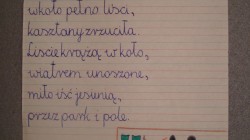 wkoło pełno liści,
kasztany zrzucała.
Liście krążą w koło,
wiatrem unoszone,
miło iść jesienią,
przez park i pole.